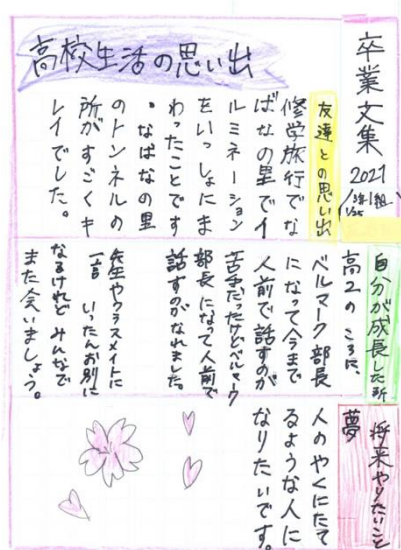 卒業文集
2021
3年1組
1/25
高校生活の思い出
友達との思い出
修学旅行でな
ばなの里でイ
ルミネーション
をいっしょにま
わったことです
。なばなの里
のトンネルの
所がすごくキ
レイでした。
自分が成長した所
高2のころに、
ベルマーク部長
になって今まで
人前で話すのが
苦手だったけどベルマーク
部長になって人前で
話すのがなれました。
先生やクラスメイトに
一言 いったんお別に
なるけれどみんなで
また会いましょう。
将来やりたいこと
夢
人のやくにたて
るような人に
なりたいです。